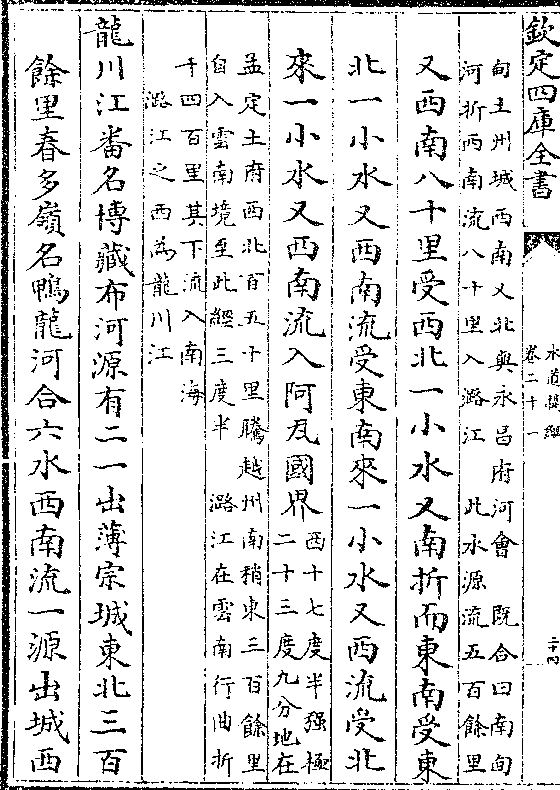 欽定四庫全書
水道提綱
卷二十一
二十四
甸土州城西南又北與永昌府河會既合曰南甸
河折西南流八十里入潞江此水源流五百餘里
又西南八十里受西北一小水又南折而東南受東
北一小水又西南流受東南來一小水又西流受北
來一小水又西南流入阿瓦國界
西十七度半强極
二十三度九分地在
孟定土府西北百五十里騰越州南稍東三百餘里
自入雲南境至此經三度半潞江在雲南行曲折
千四百里其下流入南海
潞江之西為龍川江
龍川江番名博藏布河源有二一出薄宗城東北三百
餘里春多嶺名鴨龍河合六水西南流一源出城西